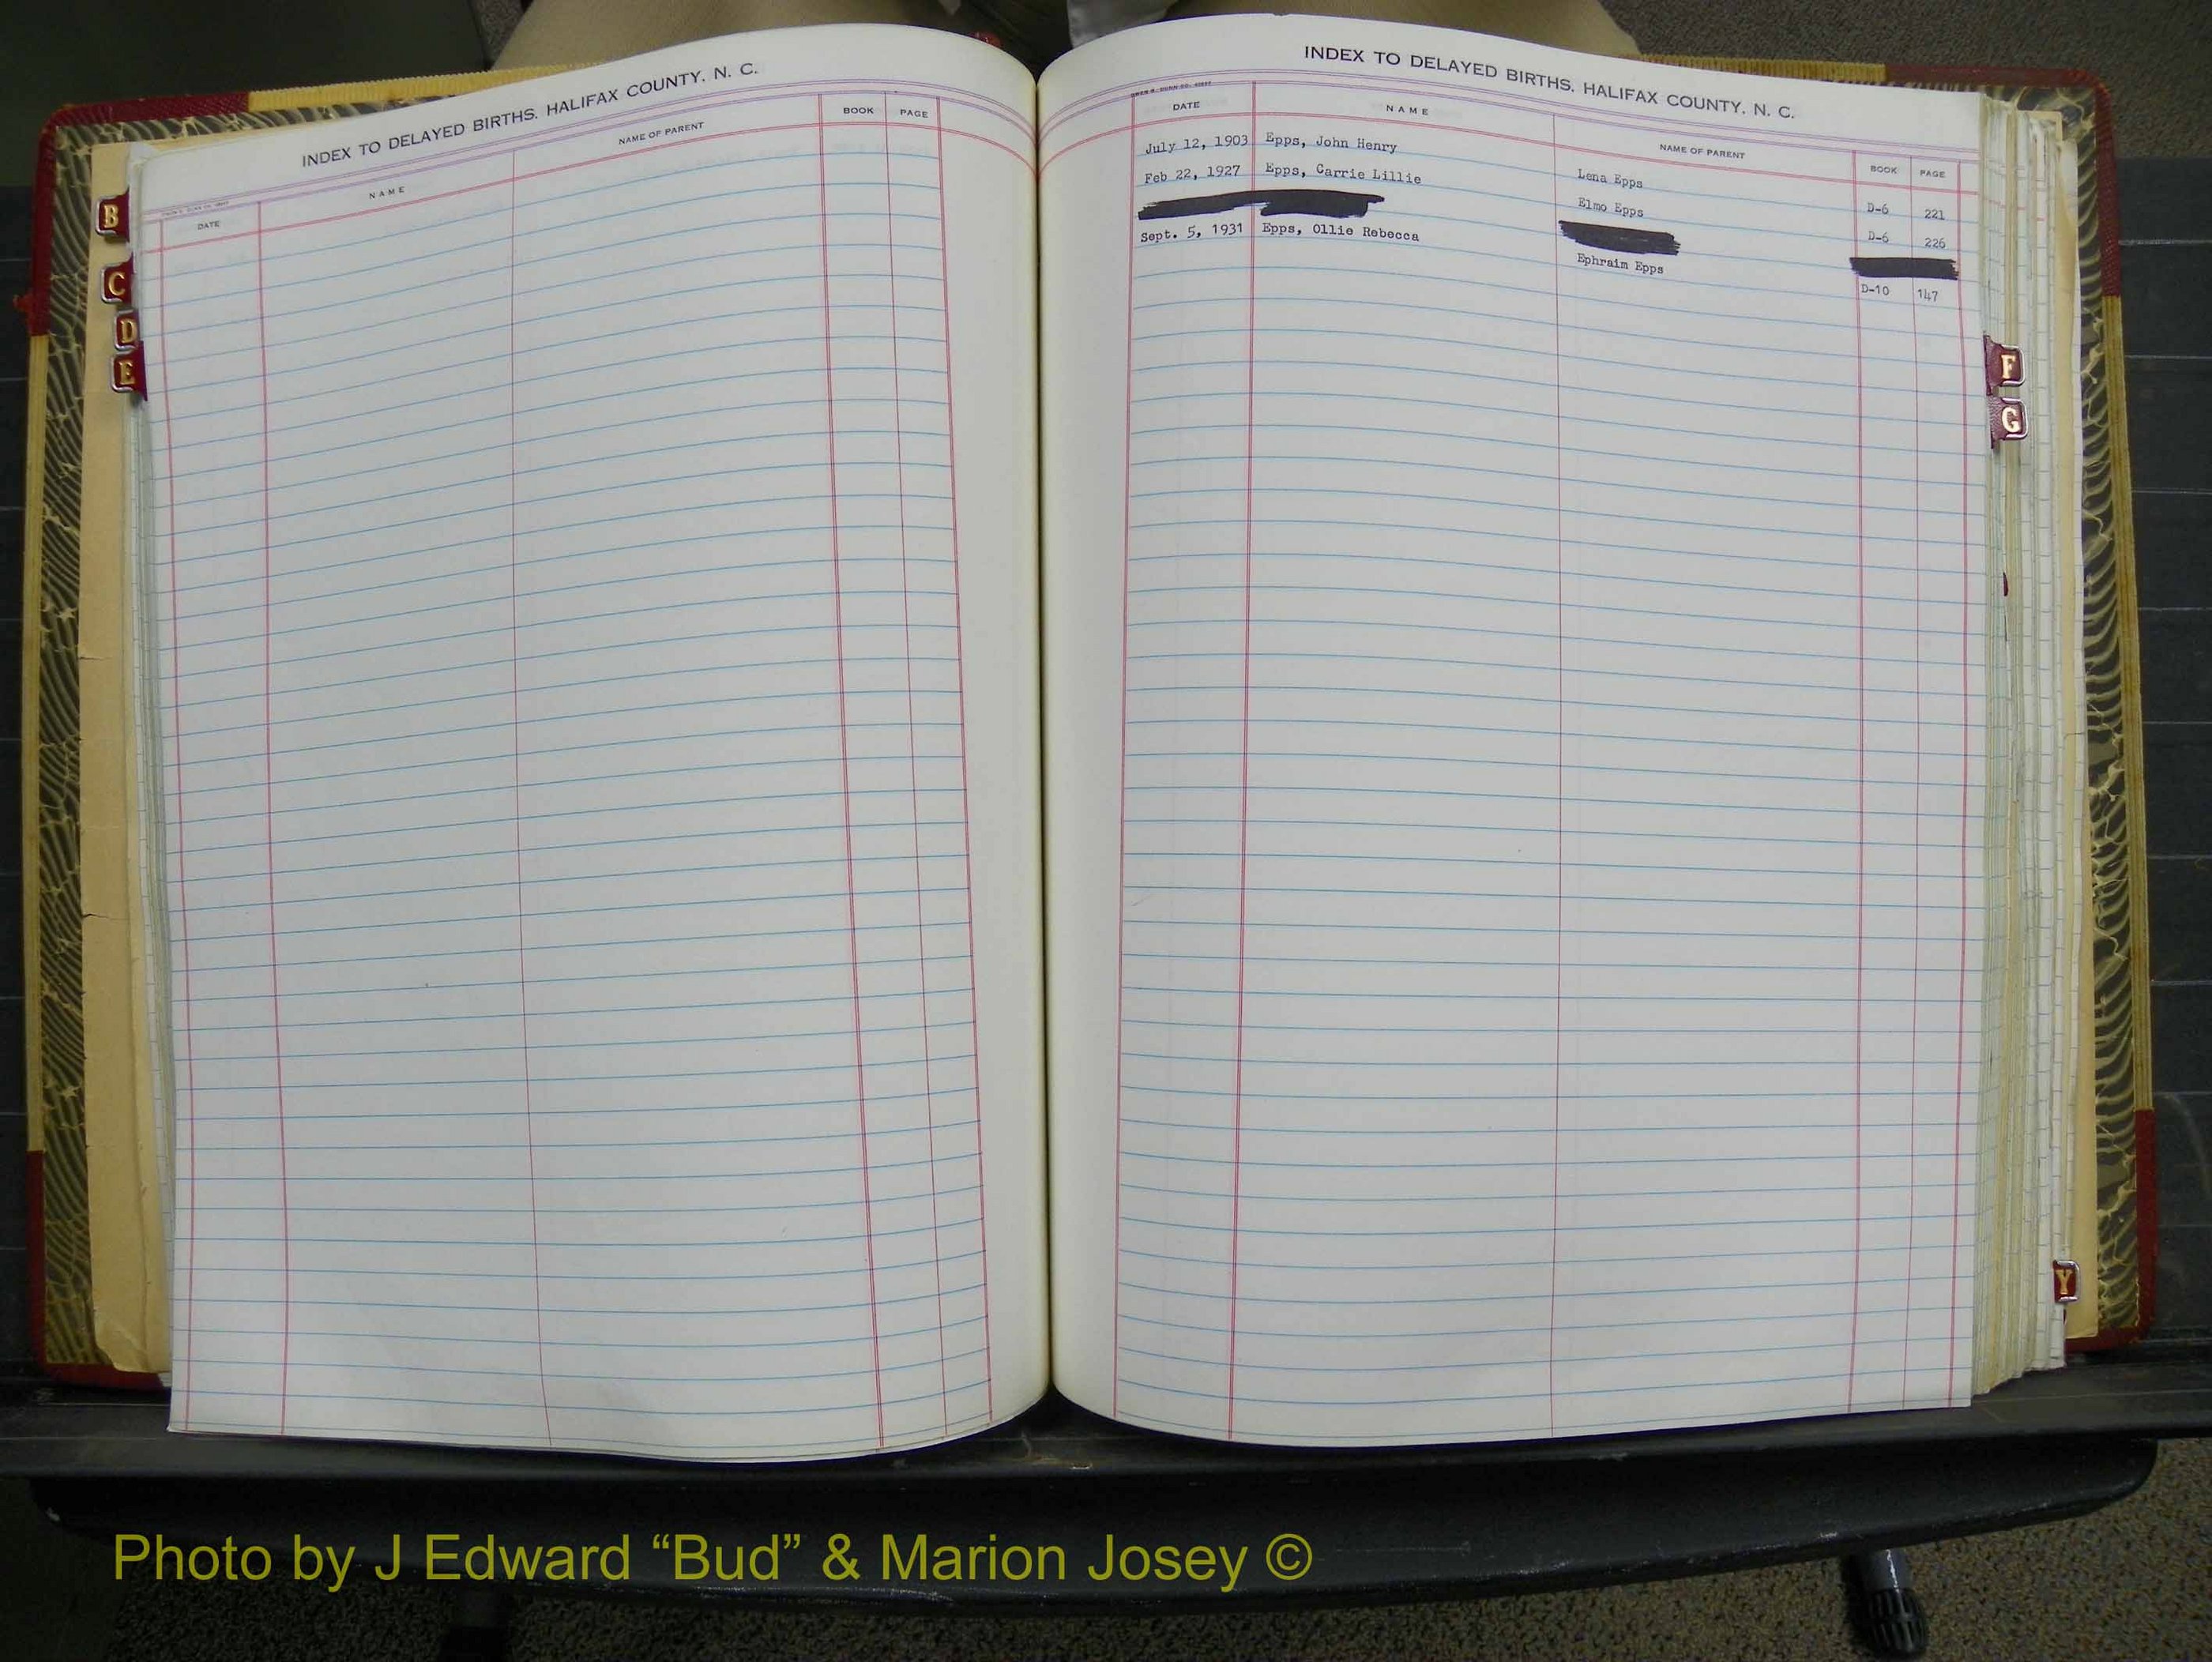 INDEX TO DELAYED BIRTHS. HALIFAX COUNTY. N. C.
DATE NAME NAME OF PARENT BOOK PAGE
INDEX TO DELAYED BIRTHS. HALIFAX COUNTY. N. C.
DATE NAME NAME OF PARENT BOOK PAGE
July 12, 1903 Epps, John Henry Lena Epps D-6 221
Feb 22, 1927 Epps, Carrie Lillie Elmo Epps D-6 226
Sept. 5, 1931 Epps, Ollie Rebecca Ephraim Epps D-10 147
B
C
D
E
F
G
Y
Photo by J Edward “Bud” & Marion Josey ©